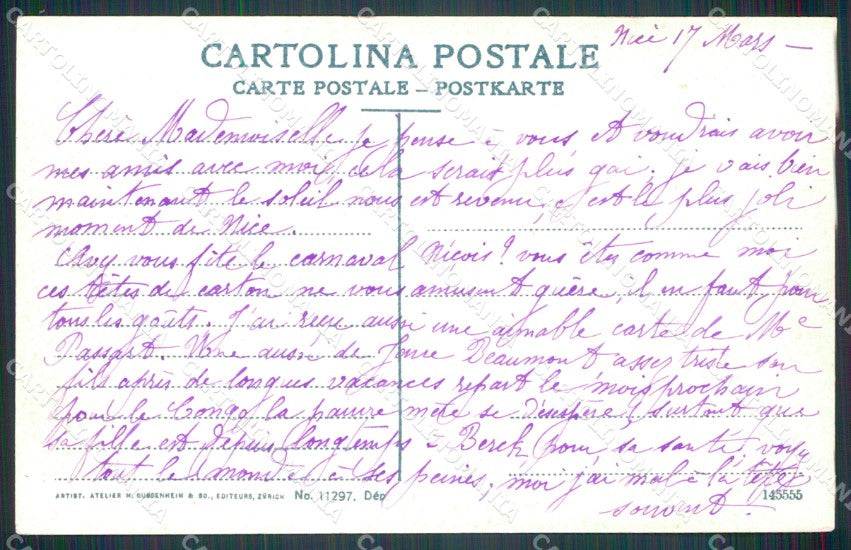 Nice 17 Mars –
CARTOLINA POSTALE
CARTE POSTALE – POSTKARTE
Chère Mademoiselle, je pense à vous, et voudrais avoir
mes amis avec moi, cela serait plus gai. je vais bien
maintenant le soleil nous est revenu, c'est le plus joli
moment de Nice.
Avez vous fêté le carnaval Niçois? vous êtes comme moi
ces têtes de carton ne vous amusent guère, il en faut pour
tous les goûts. J'ai reçu aussi une aimable carte de Me
Passart. Une aussi de Deaumont assez triste son
fils après de longues vacances repart le mois prochain
pour le Congo la pauvre mère se désespère! surtout que
sa fille est depuis longtemps à Berck pour sa santé, voyez
tout le monde a ses peines, moi j'ai mal à la tête
souvent –
ARTIST. ATELIER H. GUGGENHEIM & CO., EDITEURS, ZÜRICH No. 11297. Dép
145555
CARTOLINOMANIA